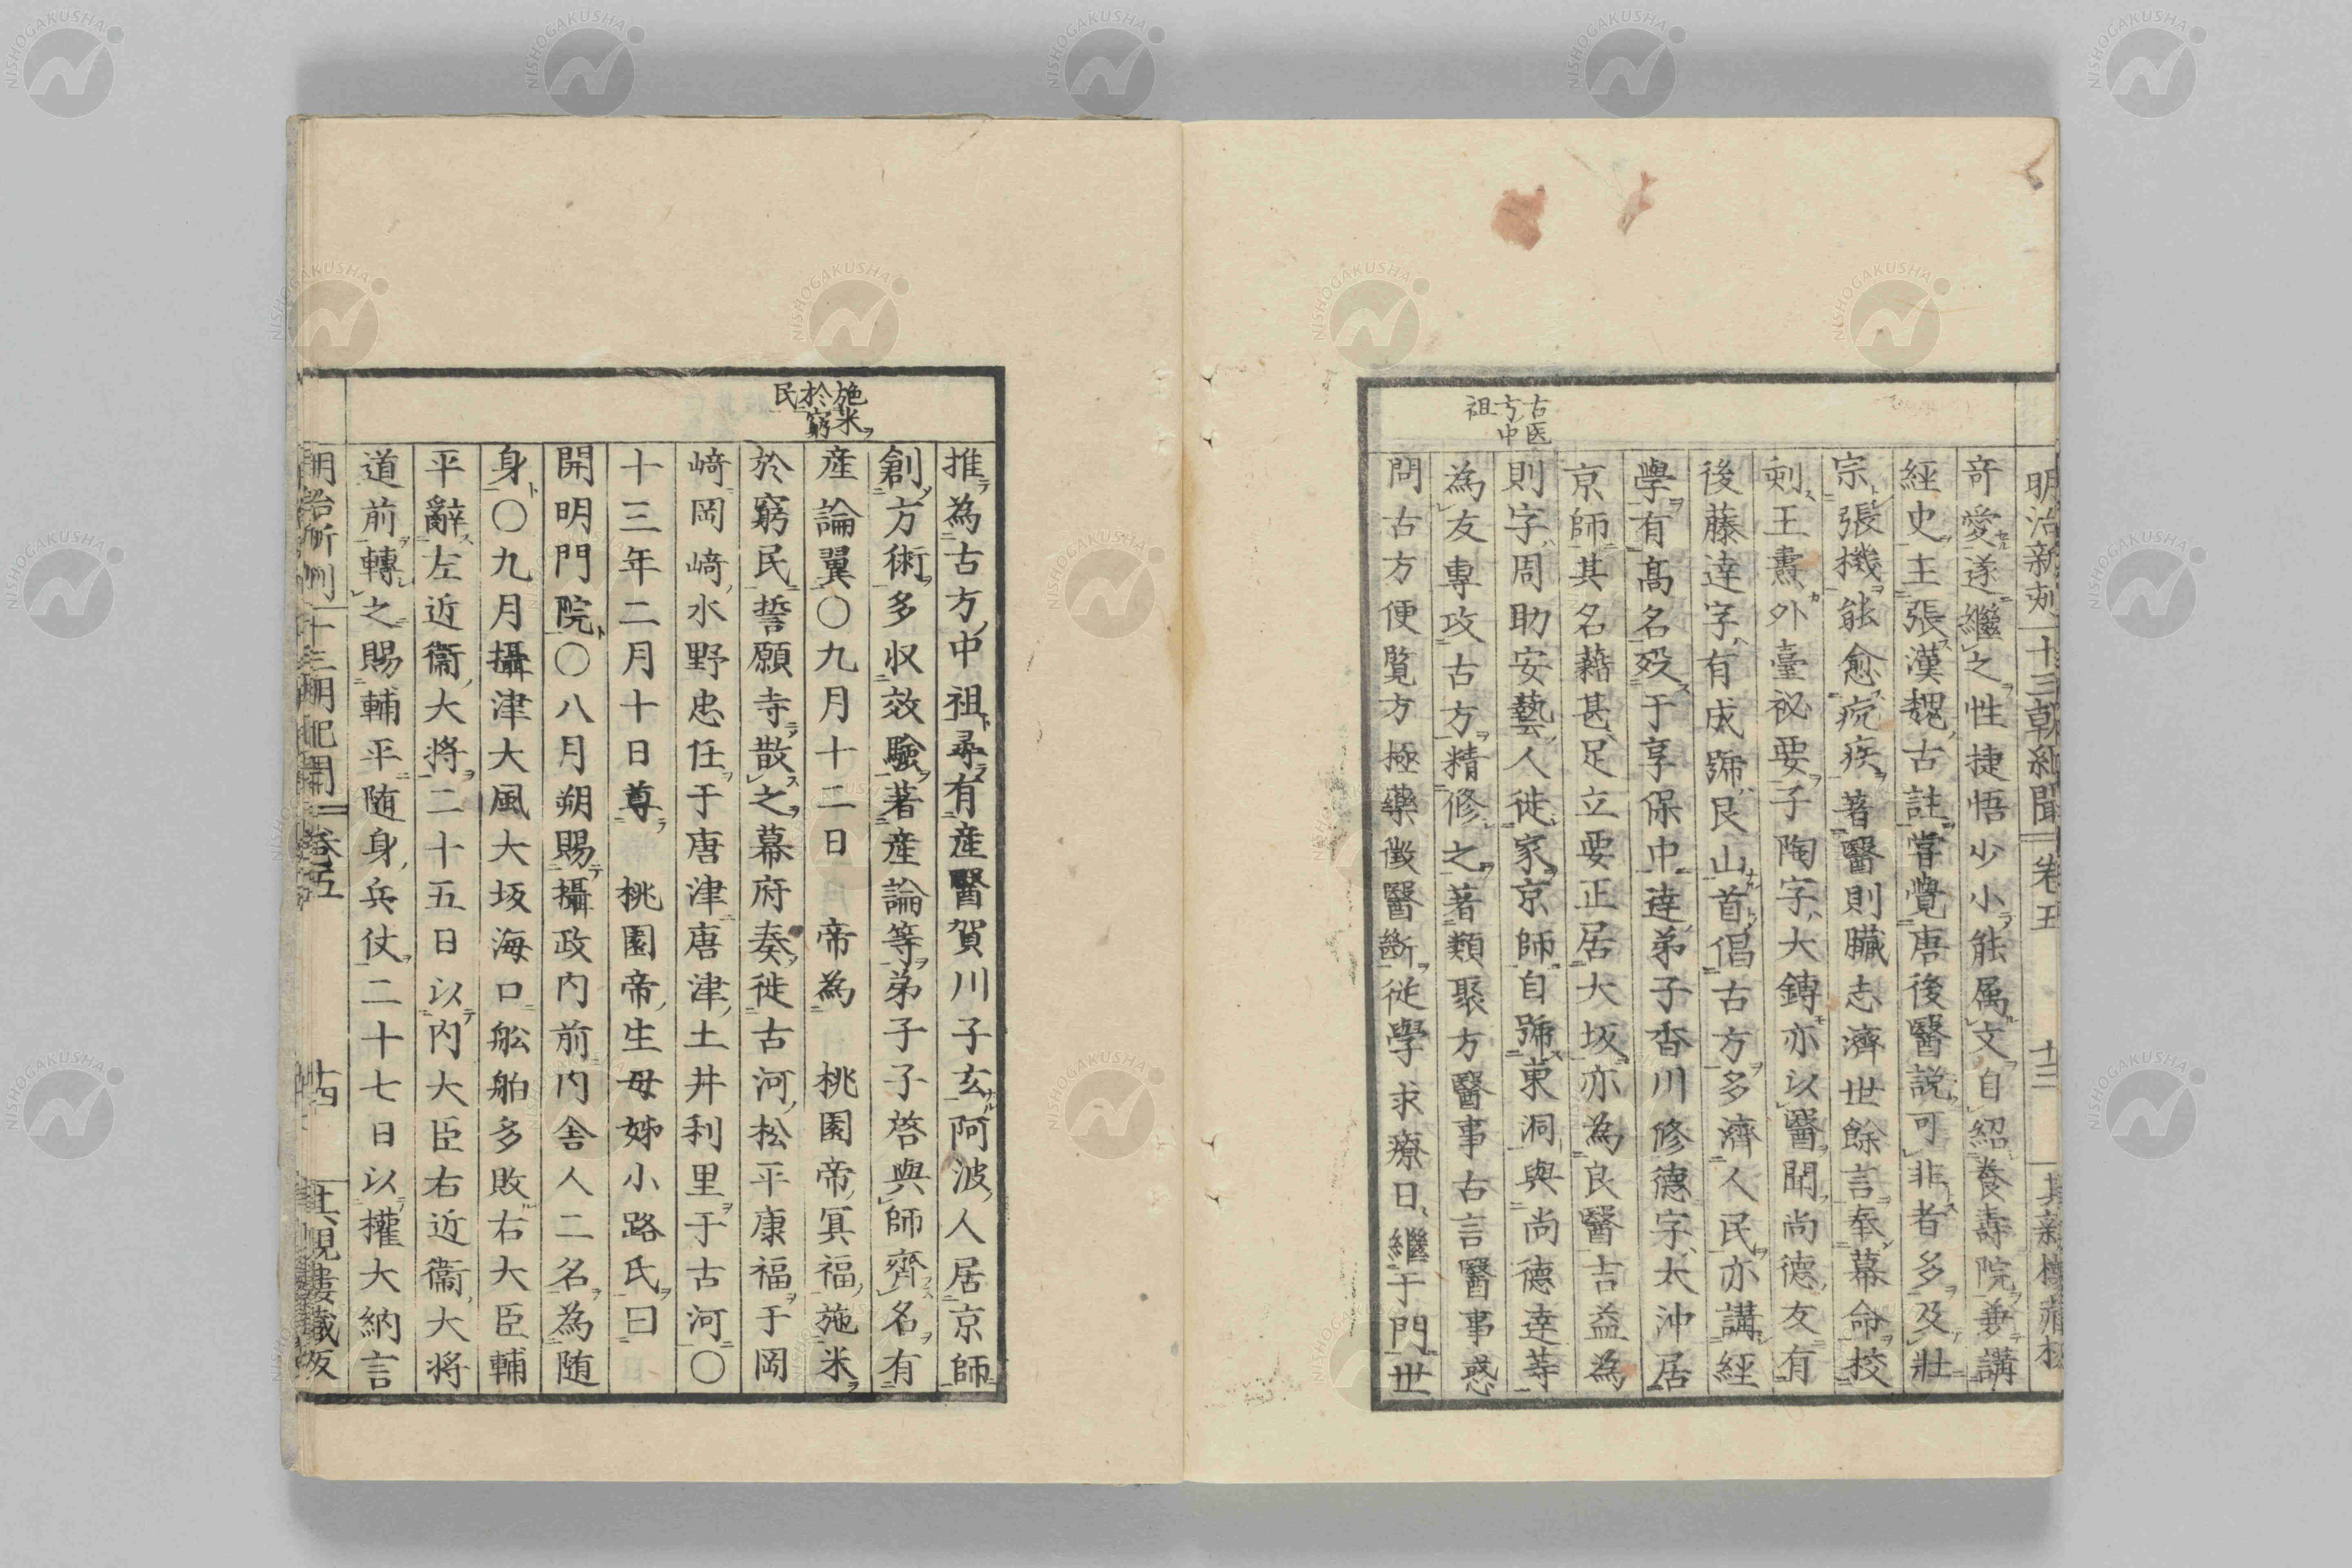 明治新刻 十三朝紀聞 卷五 十三
奇愛遂繼之性捷悟少小能属文自紹養壽院兼講
經史主張漢魏古註嘗覺唐後醫説可非者多及壯
宗張機能愈痼疾著醫則臟志濟世餘言奉幕命校
刻王燾外臺祕要子陶字大鑄亦以醫聞尚德友有
後藤達字有成號艮山首倡古方多濟人民亦講經
學有高名歿于享保中達弟子香川修德字太沖居
京師其名藉甚足立要正居大坂亦為良醫吉益為
則字周助安藝人徙家京師自號東洞與尚德達等
為友專攻古方精修之著類聚方醫事古言醫事惑
問古方便覧方極藥徴醫斷從學求療日繼于門世
古医
方中
祖
推為古方中祖尋有産醫賀川子玄阿波人居京師
創方術多収效驗著産論等弟子子啓與師齊名有
産論翼〇九月十二日 帝為 桃園帝冥福施米
於窮民誓願寺散之幕府奏徙古河松平康福于岡
﨑岡﨑水野忠任于唐津唐津土井利里于古河〇
十三年二月十日尊 桃園帝生母姉小路氏曰
開明門院〇八月朔賜攝政内前内舎人二名為随
身〇九月攝津大風大坂海口舩舶多敗右大臣輔
平辭左近衞大将二十五日以内大臣右近衞大将
道前轉之賜輔平随身兵仗二十七日以權大納言
施米
於窮
民
明治新刻 十三朝紀聞 卷五 十四